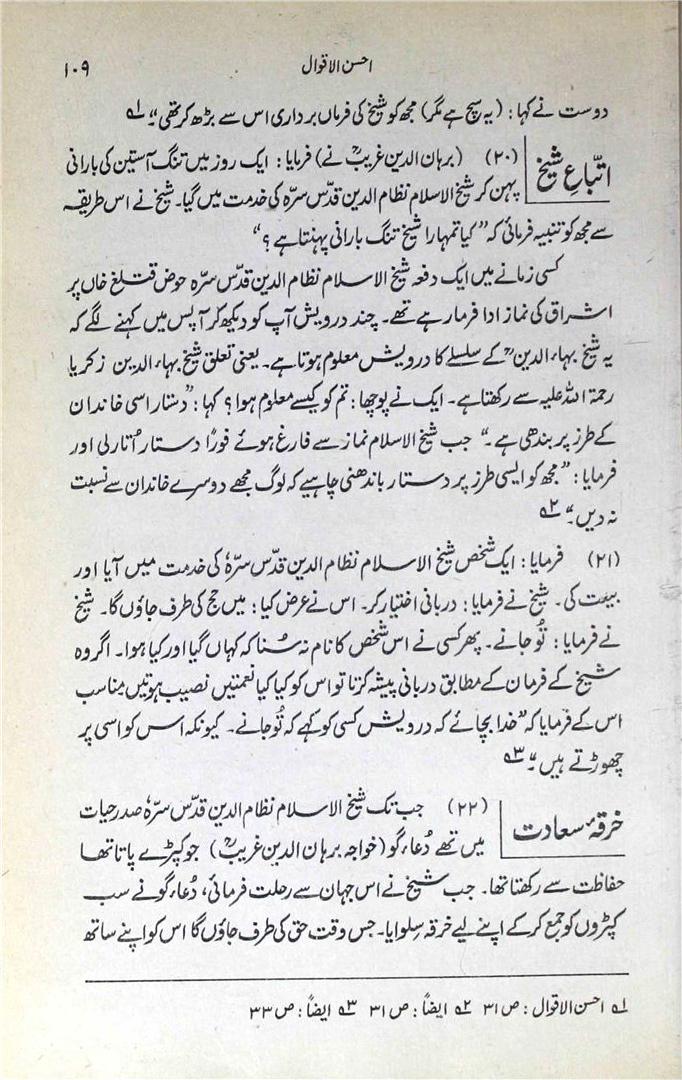 احسن الاقوال
۱۰۹
دوست نے کہا: (یہ سچ ہے مگر) مجھ کو شیخ کی فرماں برداری اس سے بڑھ کر تھی۔" ۱؎
اتباعِ شیخ
(۲۰) (برہان الدین غریبؒ نے) فرمایا: ایک روز میں تنگ آستین کی بارانی
پہن کر شیخ الاسلام نظام الدین قدّس سرّہ کی خدمت میں گیا۔ شیخ نے اس طریقہ
سے مجھ کو تنبیہ فرمائی کہ "کیا تمہارا شیخ تنگ بارانی پہنتا ہے؟"
کسی زمانے میں ایک دفعہ شیخ الاسلام نظام الدین قدّس سرّہ حوض قتلغ خاں پر
اشراق کی نماز ادا فرما رہے تھے۔ چند درویش آپ کو دیکھ کر آپس میں کہنے لگے کہ
یہ شیخ بہاء الدینؒ کے سلسلے کا درویش معلوم ہوتا ہے۔ یعنی تعلق شیخ بہاء الدین زکریا
رحمۃ اللہ علیہ سے رکھتا ہے۔ ایک نے پوچھا: تم کو کیسے معلوم ہوا؟ کہا: "دستار اسی خاندان
کے طرز پر بندھی ہے۔" جب شیخ الاسلام نماز سے فارغ ہوئے فوراً دستار اُتار لی اور
فرمایا: "مجھ کو ایسی طرز پر دستار باندھنی چاہیے کہ لوگ مجھے دوسرے خاندان سے نسبت
نہ دیں۔" ۲؎
(۲۱) فرمایا: ایک شخص شیخ الاسلام نظام الدین قدّس سرّہٗ کی خدمت میں آیا اور
بیعت کی۔ شیخ نے فرمایا: دربانی اختیار کر۔ اس نے عرض کیا: میں حج کی طرف جاؤں گا۔ شیخ
نے فرمایا: تُو جانے۔ پھر کسی نے اس شخص کا نام نہ سُنا کہ کہاں گیا اور کیا ہوا۔ اگر وہ
شیخ کے فرمان کے مطابق دربانی پیشہ کرتا تو اس کو کیا کیا نعمتیں نصیب ہوتیں مناسب
اس کے فرمایا کہ "خدا بچائے کہ درویش کسی کو کہے کہ تُو جانے۔ کیونکہ اس کو اسی پر
چھوڑتے ہیں۔" ۳؎
خرقۂ سعادت
(۲۲) جب تک شیخ الاسلام نظام الدین قدّس سرّہٗ صدر حیات
میں تھے دُعاء گو (خواجہ برہان الدین غریبؒ) جو کپڑے پاتا تھا
حفاظت سے رکھتا تھا۔ جب شیخ نے اس جہان سے رحلت فرمائی، دُعاء گو نے سب
کپڑوں کو جمع کر کے اپنے لیے خرقہ سِلوایا۔ جس وقت حق کی طرف جاؤں گا اس کو اپنے ساتھ
۱؎ احسن الاقوال: ص ۳۱ ۲؎ ایضاً: ص ۳۱ ۳؎ ایضاً: ص ۳۳